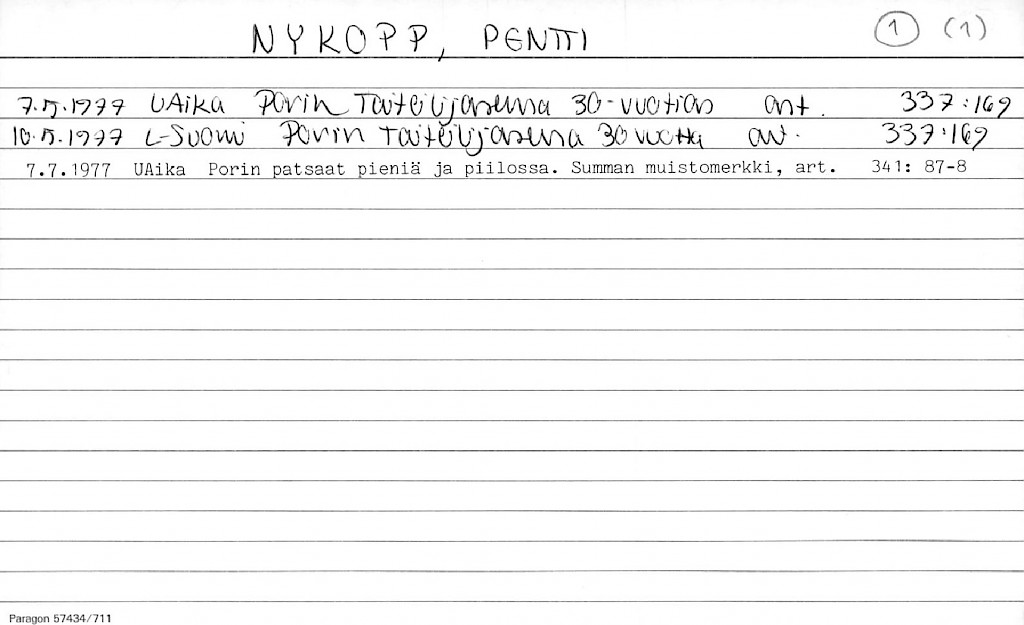 NYKOPP, PENTTI 1 (1)
7.5.1977 UAika Porin Taiteilijaseura 30-vuotias art. 337:169
10.5.1977 L-Suomi Porin Taiteilijaseura 30 vuotta art. 337:169
7.7.1977 UAika Porin patsaat pieniä ja piilossa. Summan muistomerkki, art. 341: 87-8
Paragon 57434/711